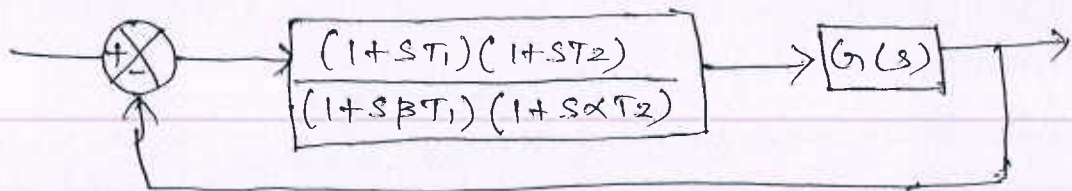 +
-
(1+ST₁)(1+ST2)
(1+SβT₁)(1+SαT2)
G(s)